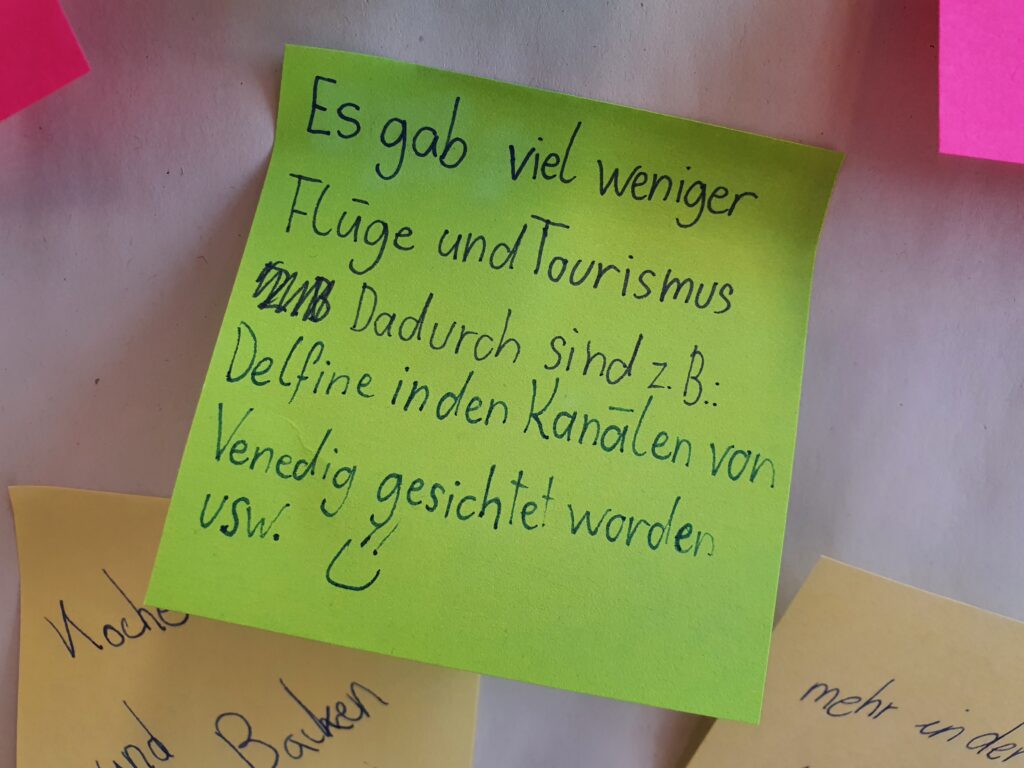 Es gab viel weniger
Flüge und Tourismus
Dadurch sind z.B.:
Delfine in den Kanälen von
Venedig gesichtet worden
usw.
Koche
und Backen
mehr in der